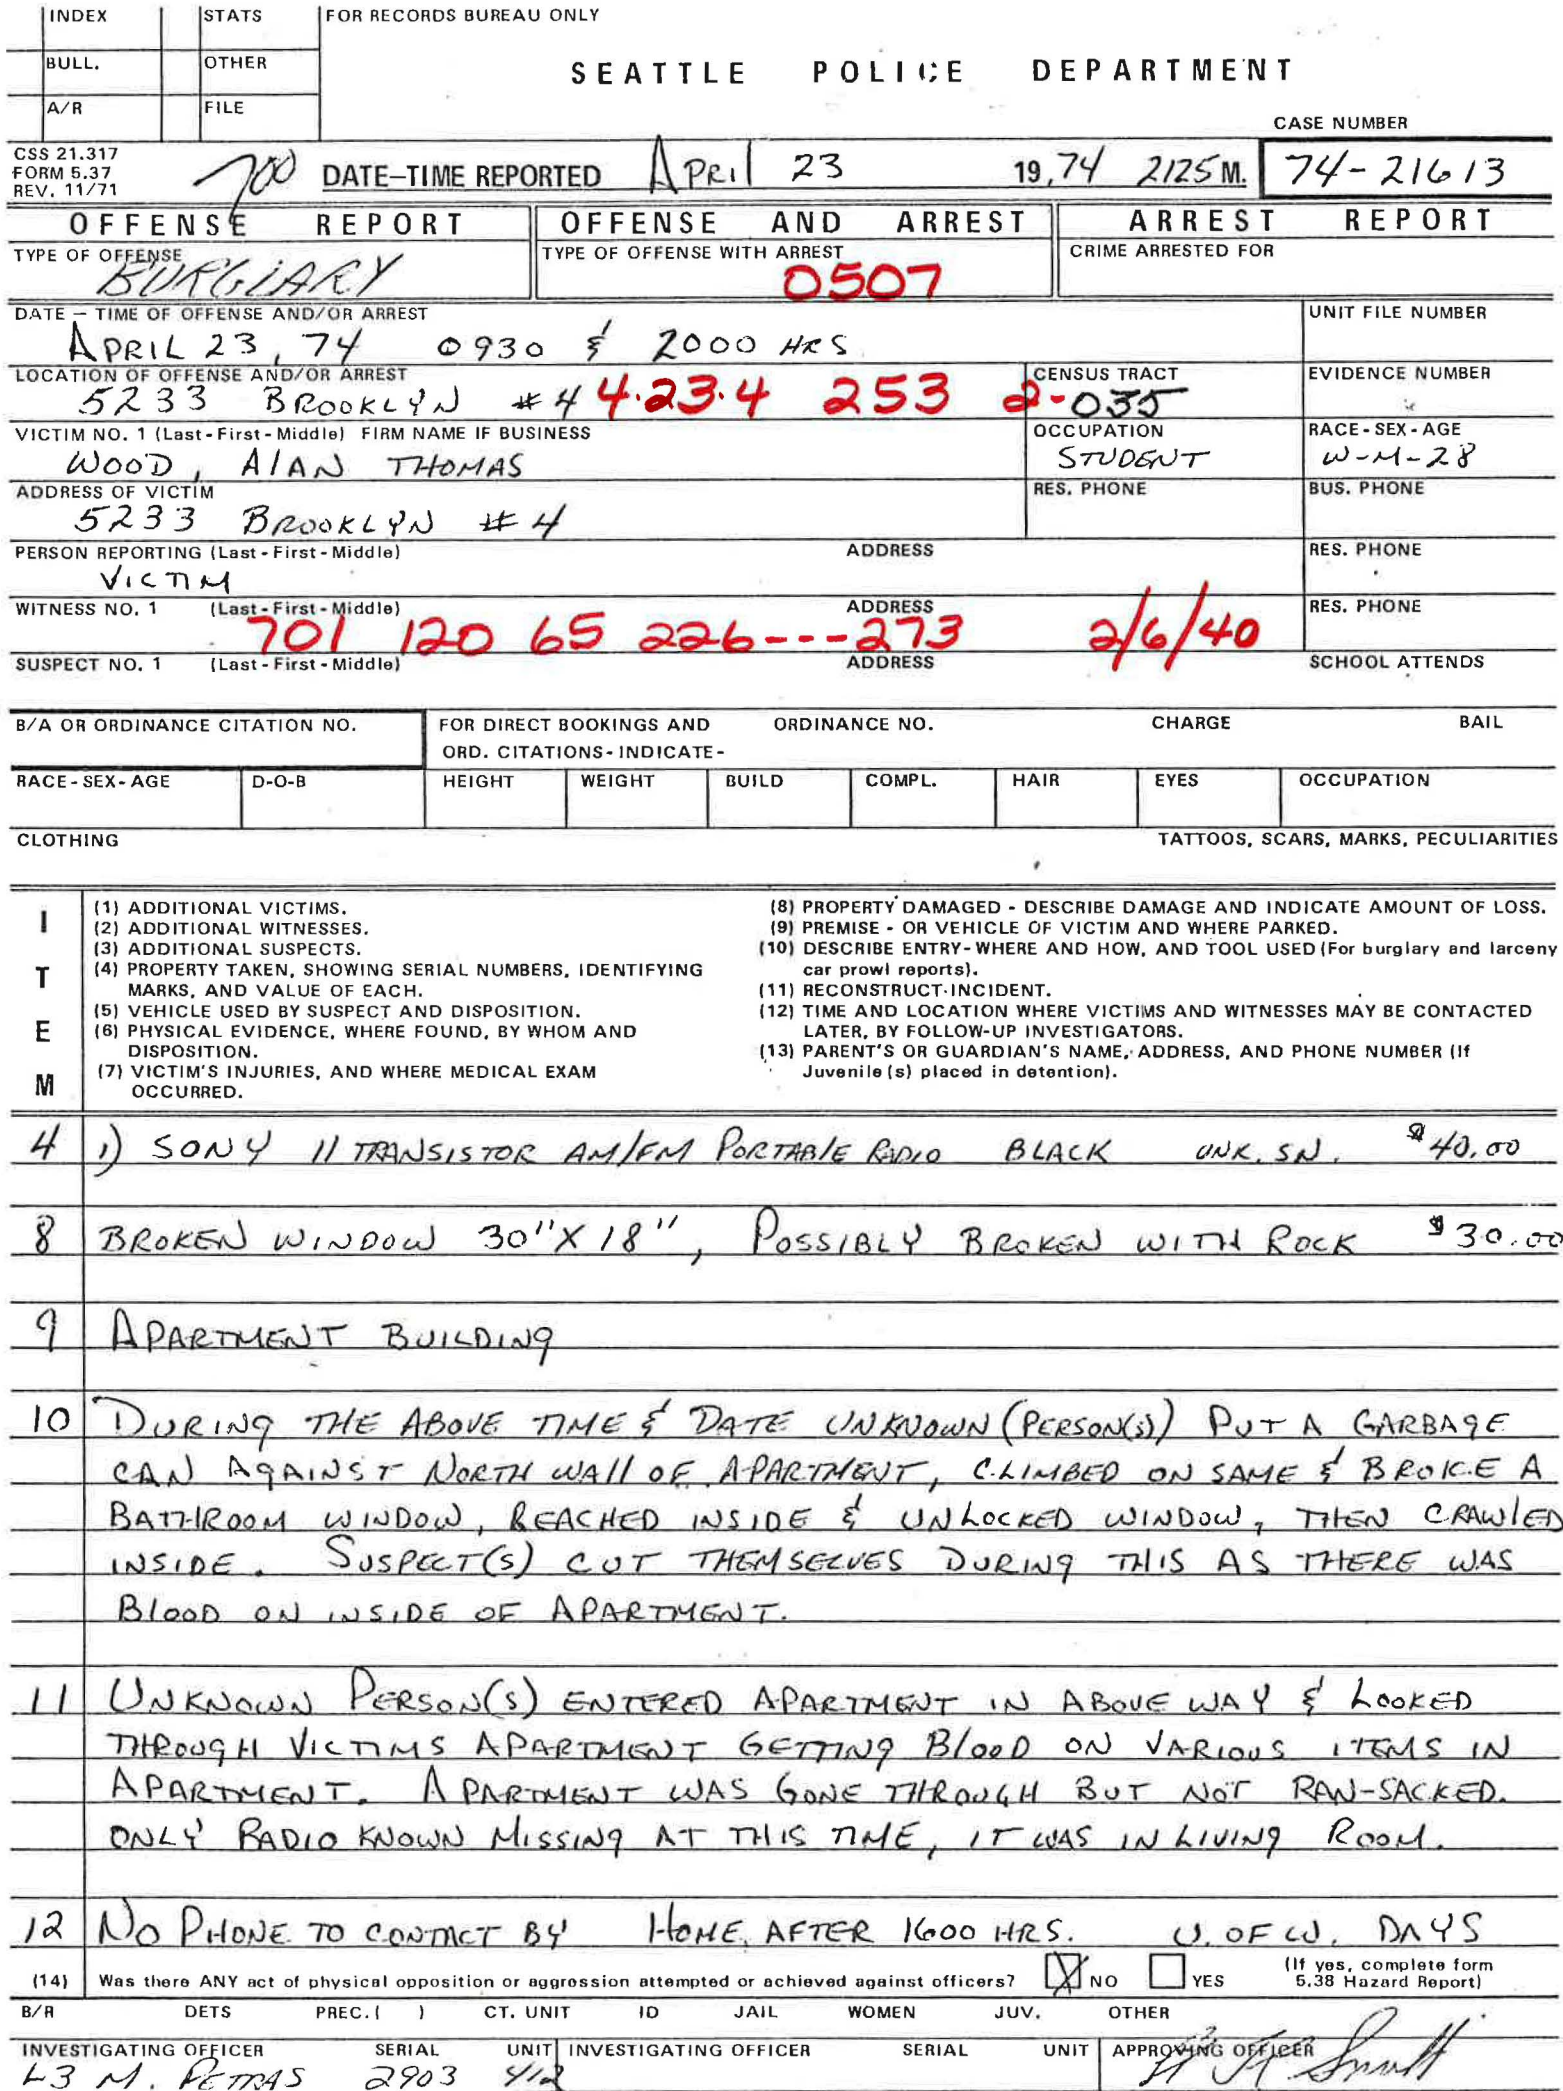 INDEX STATS FOR RECORDS BUREAU ONLY
BULL. OTHER
SEATTLE POLICE DEPARTMENT
A/R FILE
CASE NUMBER
CSS 21.317
FORM 5.37
REV. 11/71
700 DATE-TIME REPORTED APRIL 23 19,74 2125 M. 74-21613
OFFENSE REPORT OFFENSE AND ARREST ARREST REPORT
TYPE OF OFFENSE TYPE OF OFFENSE WITH ARREST CRIME ARRESTED FOR
BURGLARY 0507
DATE - TIME OF OFFENSE AND/OR ARREST UNIT FILE NUMBER
APRIL 23, 74 0930 & 2000 HRS
LOCATION OF OFFENSE AND/OR ARREST CENSUS TRACT EVIDENCE NUMBER
5233 BROOKLYN #4 4.23.4 253 2-035
VICTIM NO. 1 (Last-First-Middle) FIRM NAME IF BUSINESS OCCUPATION RACE-SEX-AGE
WOOD, AlAN THOMAS STUDENT W-M-28
ADDRESS OF VICTIM RES. PHONE BUS. PHONE
5233 BROOKLYN #4
PERSON REPORTING (Last-First-Middle) ADDRESS RES. PHONE
VICTIM
WITNESS NO. 1 (Last-First-Middle) ADDRESS RES. PHONE
701 120 65 226---273 2/6/40
SUSPECT NO. 1 (Last-First-Middle) ADDRESS SCHOOL ATTENDS
B/A OR ORDINANCE CITATION NO. FOR DIRECT BOOKINGS AND ORDINANCE NO. CHARGE BAIL
ORD. CITATIONS-INDICATE-
RACE-SEX-AGE D-O-B HEIGHT WEIGHT BUILD COMPL. HAIR EYES OCCUPATION
CLOTHING TATTOOS, SCARS, MARKS, PECULIARITIES
ITEM
(1) ADDITIONAL VICTIMS.
(2) ADDITIONAL WITNESSES.
(3) ADDITIONAL SUSPECTS.
(4) PROPERTY TAKEN, SHOWING SERIAL NUMBERS, IDENTIFYING
MARKS, AND VALUE OF EACH.
(5) VEHICLE USED BY SUSPECT AND DISPOSITION.
(6) PHYSICAL EVIDENCE, WHERE FOUND, BY WHOM AND
DISPOSITION.
(7) VICTIM'S INJURIES, AND WHERE MEDICAL EXAM
OCCURRED.
(8) PROPERTY DAMAGED - DESCRIBE DAMAGE AND INDICATE AMOUNT OF LOSS.
(9) PREMISE - OR VEHICLE OF VICTIM AND WHERE PARKED.
(10) DESCRIBE ENTRY-WHERE AND HOW, AND TOOL USED (For burglary and larceny
car prowl reports).
(11) RECONSTRUCT INCIDENT.
(12) TIME AND LOCATION WHERE VICTIMS AND WITNESSES MAY BE CONTACTED
LATER, BY FOLLOW-UP INVESTIGATORS.
(13) PARENT'S OR GUARDIAN'S NAME, ADDRESS, AND PHONE NUMBER (If
Juvenile(s) placed in detention).
4 1) SONY 11 TRANSISTOR AM/FM PORTABlE RADIO BLACK UNK. SN. $40.00
8 BROKEN WINDOW 30"X 18", POSSIBLY BROKEN WITH ROCK $30.00
9 APARTMENT BUILDING
10 DURING THE ABOVE TIME & DATE UNKNOWN (PERSON(S)) PUT A GARBAGE
CAN AGAINST NORTH WAll OF APARTMENT, CLIMBED ON SAME & BROKE A
BATHROOM WINDOW, REACHED INSIDE & UNLOCKED WINDOW, THEN CRAWlED
INSIDE. SUSPECT(S) CUT THEMSELVES DURING THIS AS THERE WAS
BlOOD ON INSIDE OF APARTMENT.
11 UNKNOWN PERSON(S) ENTERED APARTMENT IN ABOVE WAY & LOOKED
THROUGH VICTIMS APARTMENT GETTING BlOOD ON VARIOUS ITEMS IN
APARTMENT. APARTMENT WAS GONE THROUGH BUT NOT RAN-SACKED.
ONLY RADIO KNOWN MISSING AT THIS TIME, IT WAS IN LIVING ROOM.
12 NO PHONE TO CONTACT BY HOME, AFTER 1600 HRS. U. OF W. DAYS
(14) Was there ANY act of physical opposition or aggression attempted or achieved against officers? X NO YES (If yes, complete form
5.38 Hazard Report)
B/R DETS PREC. ( ) CT. UNIT ID JAIL WOMEN JUV. OTHER
INVESTIGATING OFFICER SERIAL UNIT INVESTIGATING OFFICER SERIAL UNIT APPROVING OFFICER
L3 M. PETRAS 2903 412